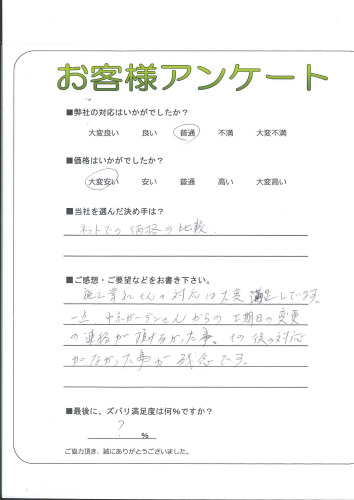 お客様アンケート
■弊社の対応はいかがでしたか？
大変良い 良い 普通 不満 大変不満
■価格はいかがでしたか？
大変安い 安い 普通 高い 大変高い
■当社を選んだ決め手は？
ネットでの価格の比較.
■ご感想・ご要望などをお書き下さい。
施工業者さんの対応は大変満足しています。
一点 ガーデンさんからの工期日の変更
の連絡が頂けなかった事、その後の対応
がなかった事が残念です。
■最後に、ズバリ満足度は何%ですか？
? %
ご協力頂き、誠にありがとうございました。